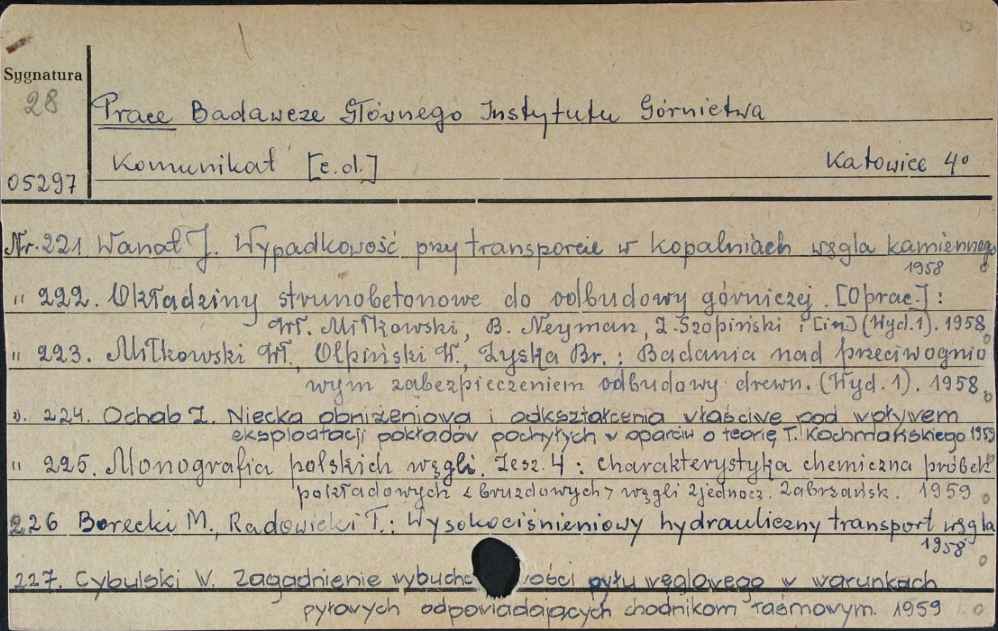 Sygnatura
28
Prace Badawcze Głównego Instytutu Górnictwa
Komunikat [c.d.] Katowice 4°
05297
Nr. 221 Wanat J. Wypadkowość przy transporcie w kopalniach węgla kamiennego
1958
" 222. Okładziny strunobetonowe do odbudowy górniczej. [Oprac.]:
Wł. Miłkowski, B. Neyman, Z. Szopiński i [in] (Wyd. 1). 1958
" 223. Miłkowski Wł., Olpiński W., Zyska Br.: Badania nad przeciwognio
wym zabezpieczeniem odbudowy drewn. (Wyd. 1). 1958
". 224. Ochab Z. Niecka obniżeniowa i odkształcenia właściwe pod wpływem
eksploatacji pokładów pochyłych w oparciu o teorię T. Kochmańskiego 1959
" 225. Monografia polskich węgli. Zesz. 4: charakterystyka chemiczna próbek
pokładowych <bruzdowych> węgli zjednocz. Zabrzańsk. 1959
226 Borecki M., Radowicki T.: Wysokociśnieniowy hydrauliczny transport węgla
1958
227. Cybulski W. Zagadnienie wybuch ości pyłu węglowego w warunkach
pyłowych odpowiadających chodnikom taśmowym. 1959